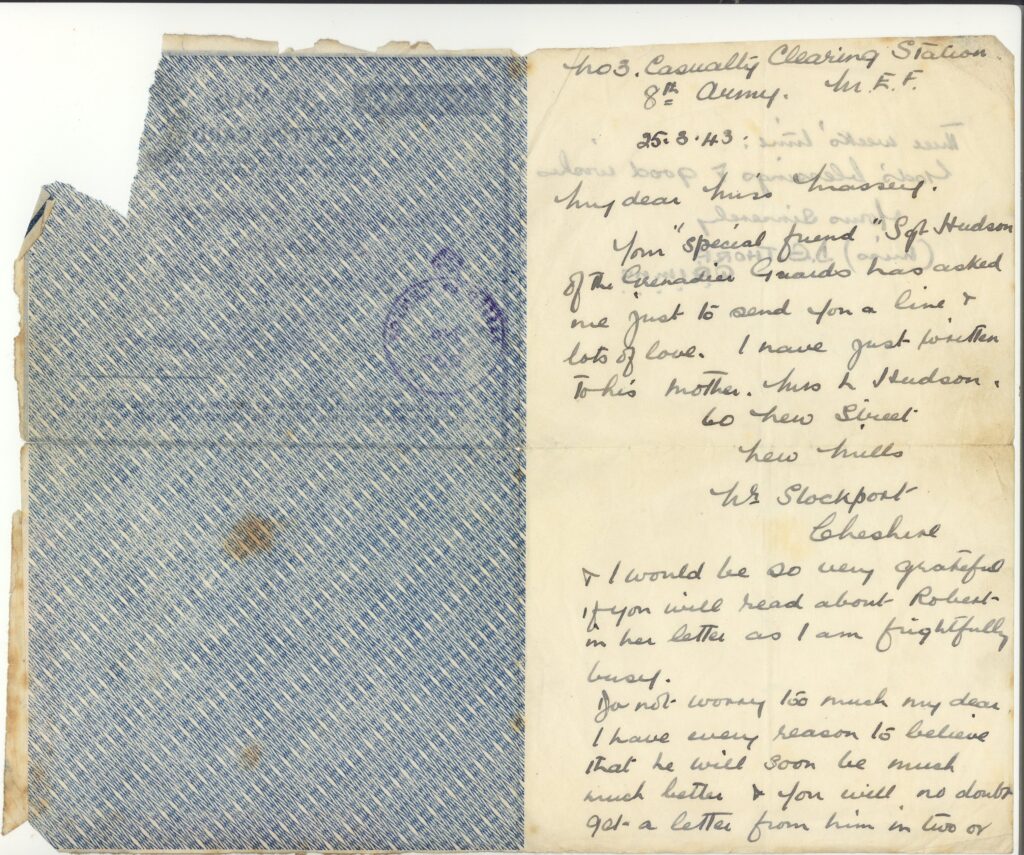 No 3. Casualty Clearing Station.
8th Army. M.E.F.
25.3.43:
My dear Miss Massey.
Your "special friend" Sgt Hudson
of the Grenadier Guards has asked
me just to send you a line &
lots of love. I have just written
to his mother. Mrs L Hudson.
60 New Street
New Mills
Nr Stockport
Cheshire
& I would be so very grateful
if you will read about Robert
in her letter as I am frightfully
busy.
Do not worry too much my dear
I have every reason to believe
that he will soon be much
much better & you will no doubt
get a letter from him in two or
three weeks' time:
God's blessings & good wishes
Yours Sincerely
(Miss)